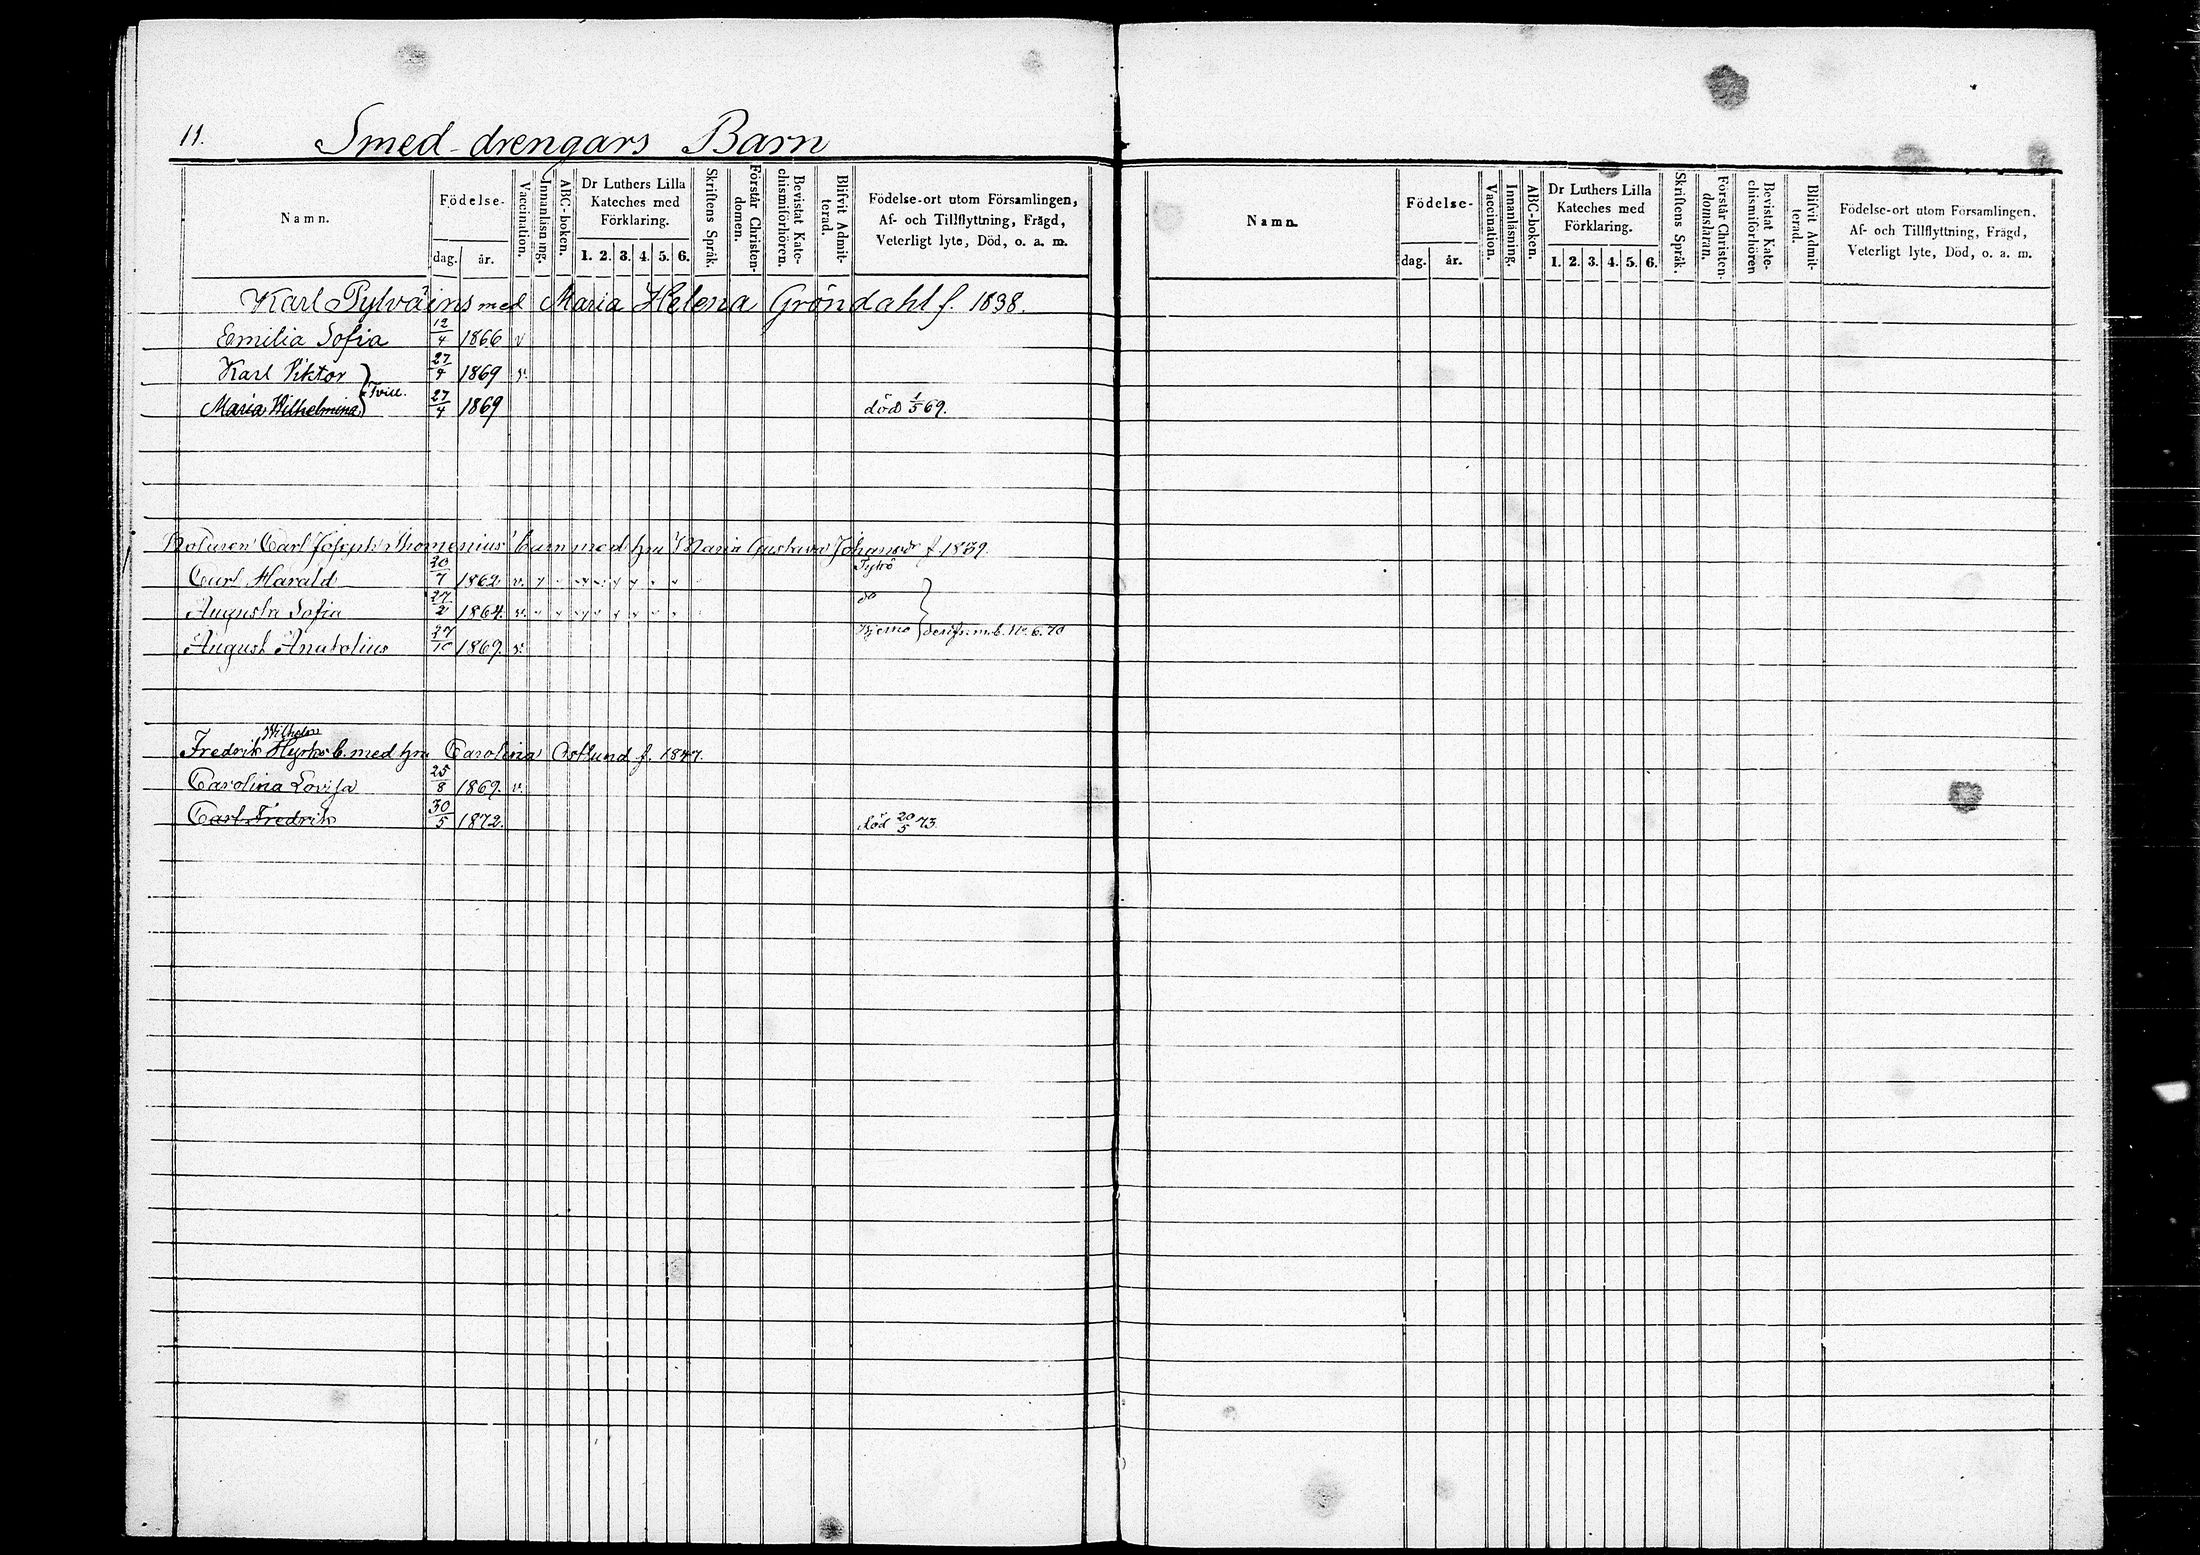 11. Smed-drengars Barn
Namn. Födelse- dag. år. Vaccination. Innanläsning. ABC-boken. Dr Luthers Lilla Kateches med Förklaring. 1. 2. 3. 4. 5. 6. Skriftens Språk. Förstår Christen-domen. Bevistat Kate-chismiförhören. Blifvit Admit-terad. Födelse-ort utom Församlingen, Af- och Tillflyttning, Frägd, Veterligt lyte, Död, o. a. m.
Karl Pylväins med Maria Helena Gröndahl f. 1838.
Emilia Sofia 12/4 1866 v
Karl Viktor 27/4 1869 v.
Tvill.
Maria Wilhelmina 27/4 1869 död 1/5 69.
Carl Joseph Thomenius' barn med hru Maria Gustava Johansdr f. 1839.
Carl Harald 20/7 1862. v.
Augusta Sofia 27/2 1864. v. do
August Anatolius 27/10 1869. v. m. b. No. 6. 70
Wilhelm
Fredrik b. med hru Carolina Östlund f. 1847.
Carolina Lovisa 25/8 1869. v.
Carl Fredrik 30/5 1872. död 20/5 73.
Namn. Födelse- dag. år. Vaccination. Innanläsning. ABC-boken. Dr Luthers Lilla Kateches med Förklaring. 1. 2. 3. 4. 5. 6. Skriftens Språk. Förstår Christen-domsläran. Bevistat Kate-chismiförhören Blifvit Admit-terad. Födelse-ort utom Församlingen, Af- och Tillflyttning, Frägd, Veterligt lyte, Död, o. a. m.